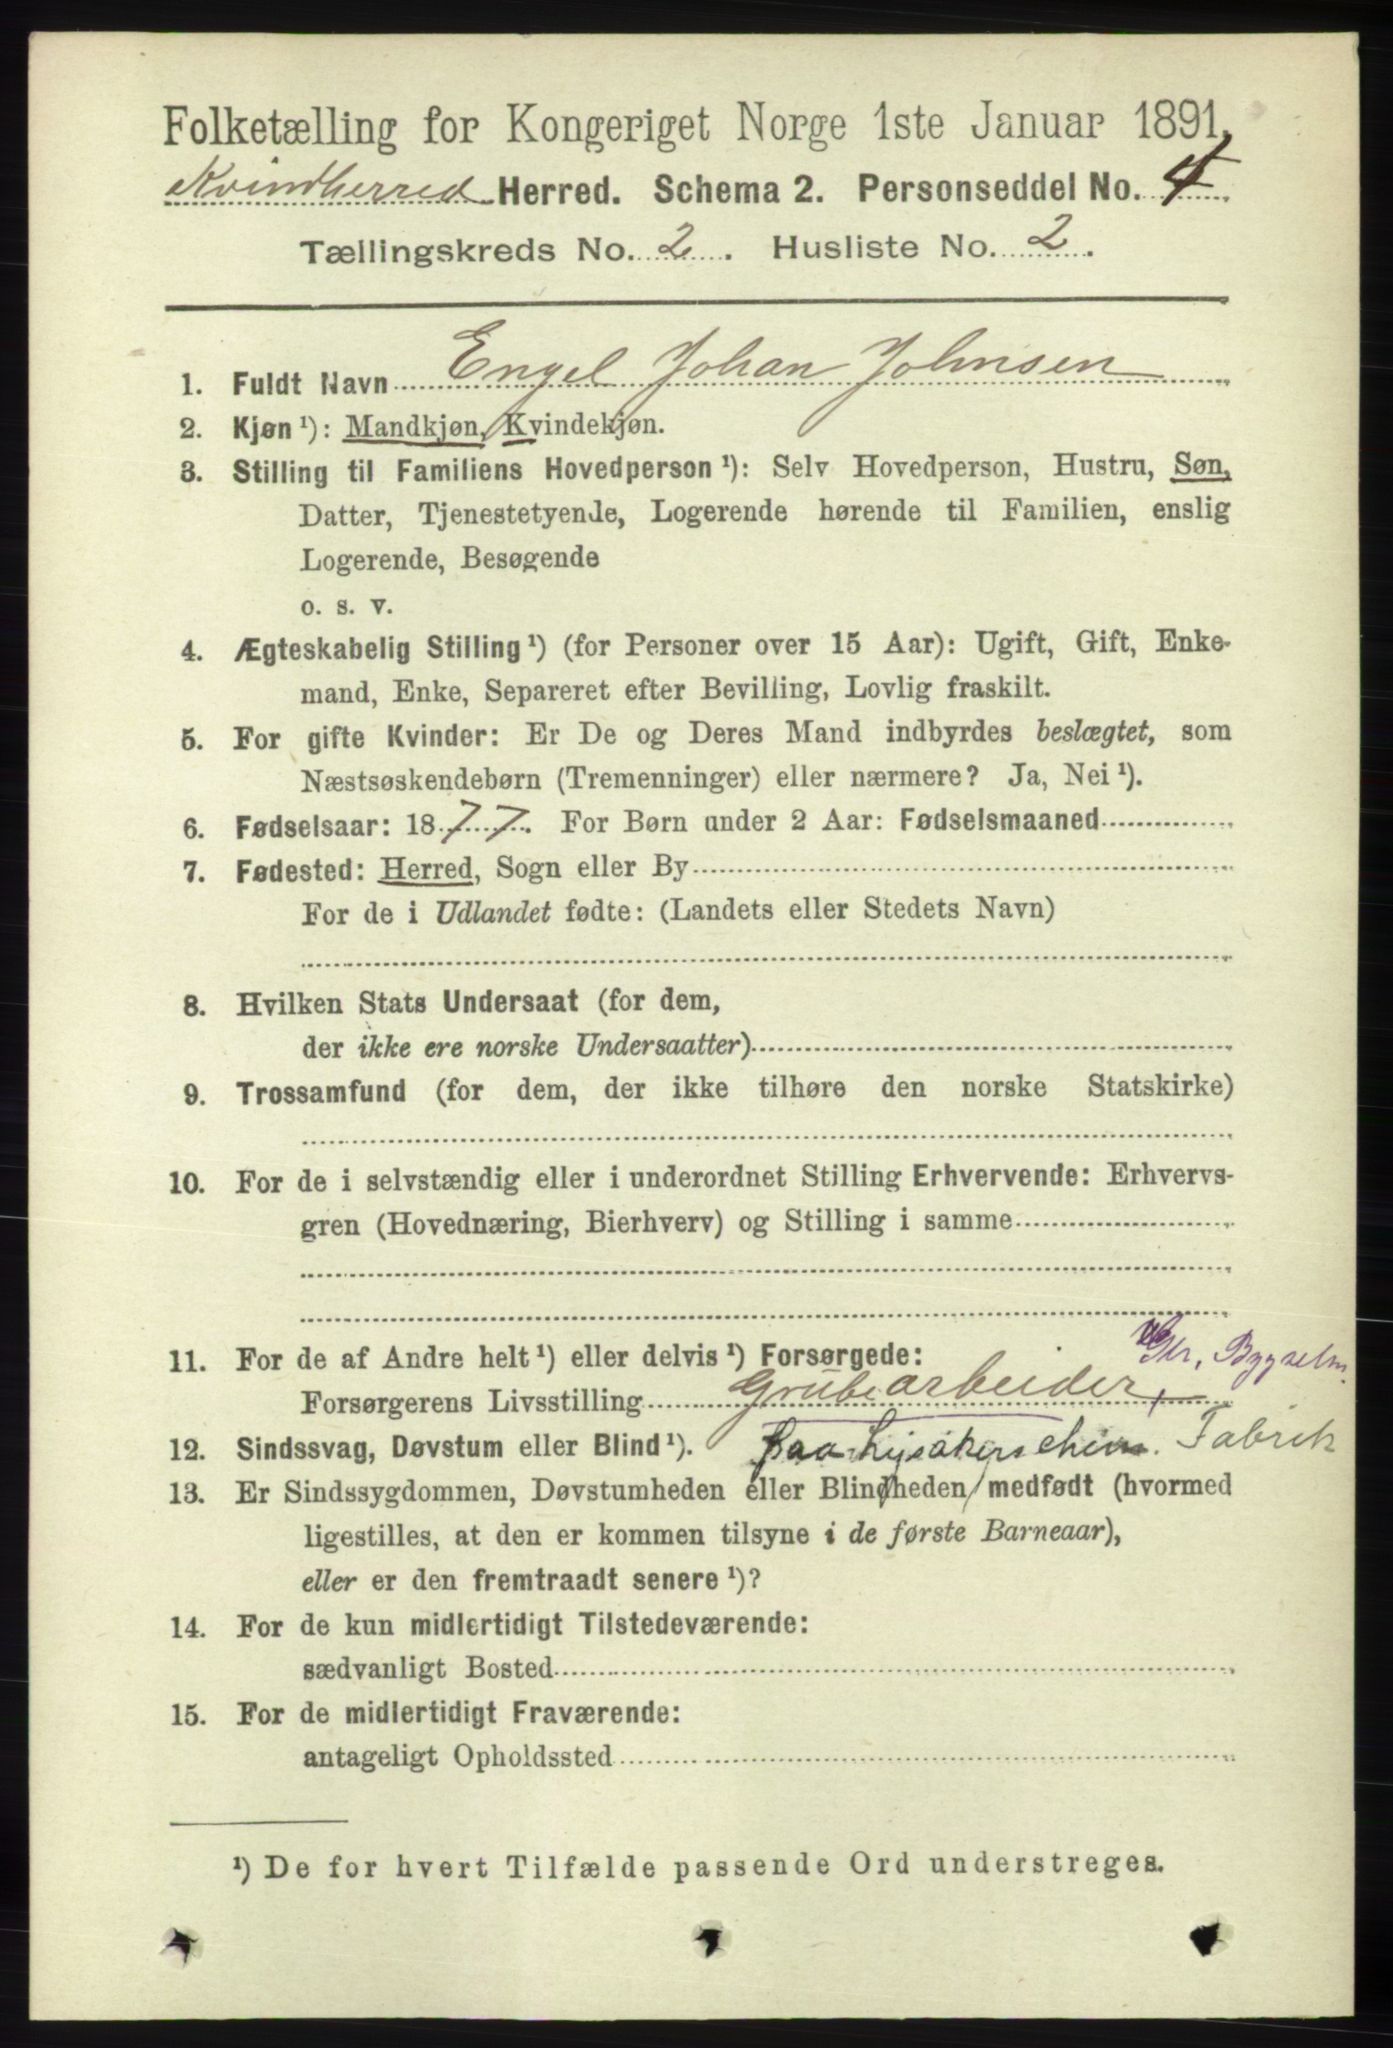 Folketælling for Kongeriget Norge 1ste Januar 1891.
Kvindherred Herred. Schema 2. Personseddel No. 4
Tællingskreds No. 2. Husliste No. 2.
1. Fuldt Navn Engel Johan Johnsen
2. Kjøn ¹): Mandkjøn, Kvindekjøn.
3. Stilling til Familiens Hovedperson ¹): Selv Hovedperson, Hustru, Søn,
Datter, Tjenestetyende, Logerende hørende til Familien, enslig
Logerende, Besøgende
o. s. v.
4. Ægteskabelig Stilling ¹) (for Personer over 15 Aar): Ugift, Gift, Enke-
mand, Enke, Separeret efter Bevilling, Lovlig fraskilt.
5. For gifte Kvinder: Er De og Deres Mand indbyrdes beslægtet, som
Næstsøskendebørn (Tremenninger) eller nærmere? Ja, Nei ¹).
6. Fødselsaar: 1877. For Børn under 2 Aar: Fødselsmaaned
7. Fødested: Herred, Sogn eller By
For de i Udlandet fødte: (Landets eller Stedets Navn)
8. Hvilken Stats Undersaat (for dem,
der ikke ere norske Undersaatter)
9. Trossamfund (for dem, der ikke tilhøre den norske Statskirke)
10. For de i selvstændig eller i underordnet Stilling Erhvervende: Erhvervs-
gren (Hovednæring, Bierhverv) og Stilling i samme
11. For de af Andre helt ¹) eller delvis ¹) Forsørgede:
Bygselm.
Forsørgerens Livsstilling Grubearbeider,
12. Sindssvag, Døvstum eller Blind ¹). paa Lysakers chem. Fabrik
13. Er Sindssygdommen, Døvstumheden eller Blindheden medfødt (hvormed
ligestilles, at den er kommen tilsyne i de første Barneaar),
eller er den fremtraadt senere ¹)?
14. For de kun midlertidigt Tilstedeværende:
sædvanligt Bosted
15. For de midlertidigt Fraværende:
antageligt Opholdssted
¹) De for hvert Tilfælde passende Ord understreges.